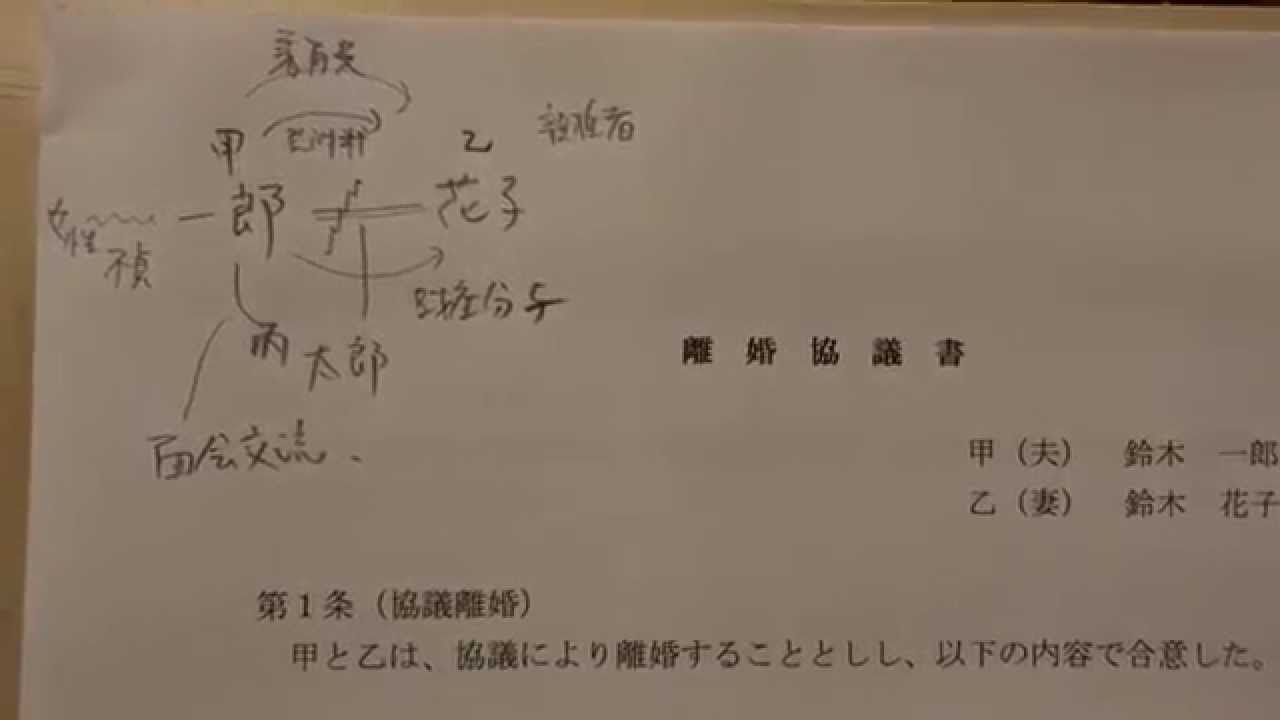 養育費
甲 慰謝料 乙 親権者
女性 一郎 花子
不貞
財産分与
丙 太郎
面会交流.
離婚協議書
甲（夫） 鈴木 一郎
乙（妻） 鈴木 花子
第1条（協議離婚）
甲と乙は、協議により離婚することとしし、以下の内容で合意した。